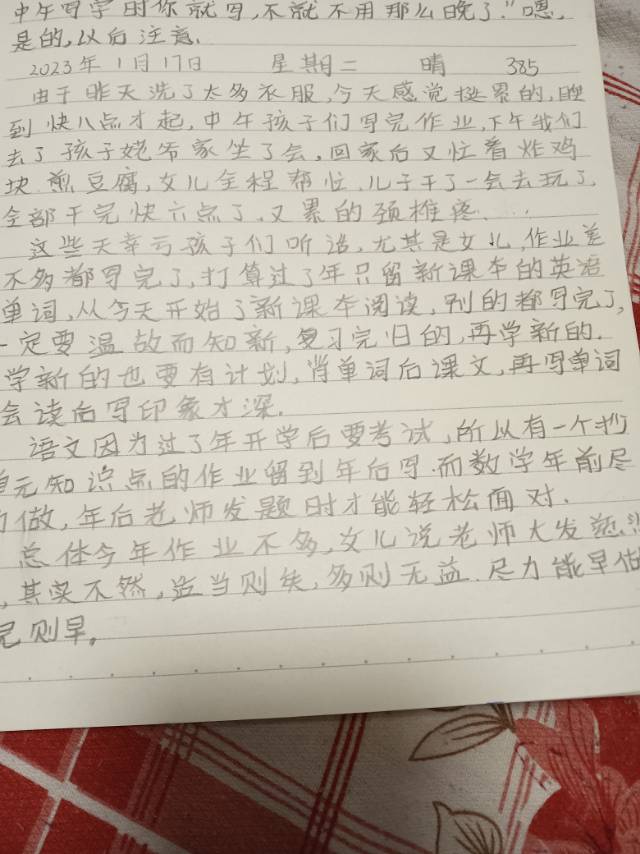 中午写字时你就写,不就不用那么晚了。"嗯,
是的,以后注意.
2023年1月17日 星期二 晴 385
由于昨天洗了太多衣服,今天感觉挺累的,睡
到快八点才起,中午孩子们写完作业,下午我们
去了孩子姥爷家坐了会,回家后又忙着炸鸡
块.煎豆腐,女儿全程帮忙,儿子干了一会去玩了,
全部干完快六点了,又累的颈椎疼.....
这些天幸亏孩子们听话,尤其是女儿,作业差
不多都写完了,打算过了年只留新课本的英语
单词,从今天开始了新课本阅读,别的都写完了,
一定要温故而知新,复习完旧的,再学新的.
学新的也要有计划,背单词后课文,再写单词
会读后写印象才深.
语文因为过了年开学后要考试,所以有一个抄
单元知识点的作业留到年后写.而数学年前尽
做,年后老师发题时才能轻松面对.
总体今年作业不多,女儿说老师大发
,其实不然,适当则佳,多则无益.尽力能早
则早。